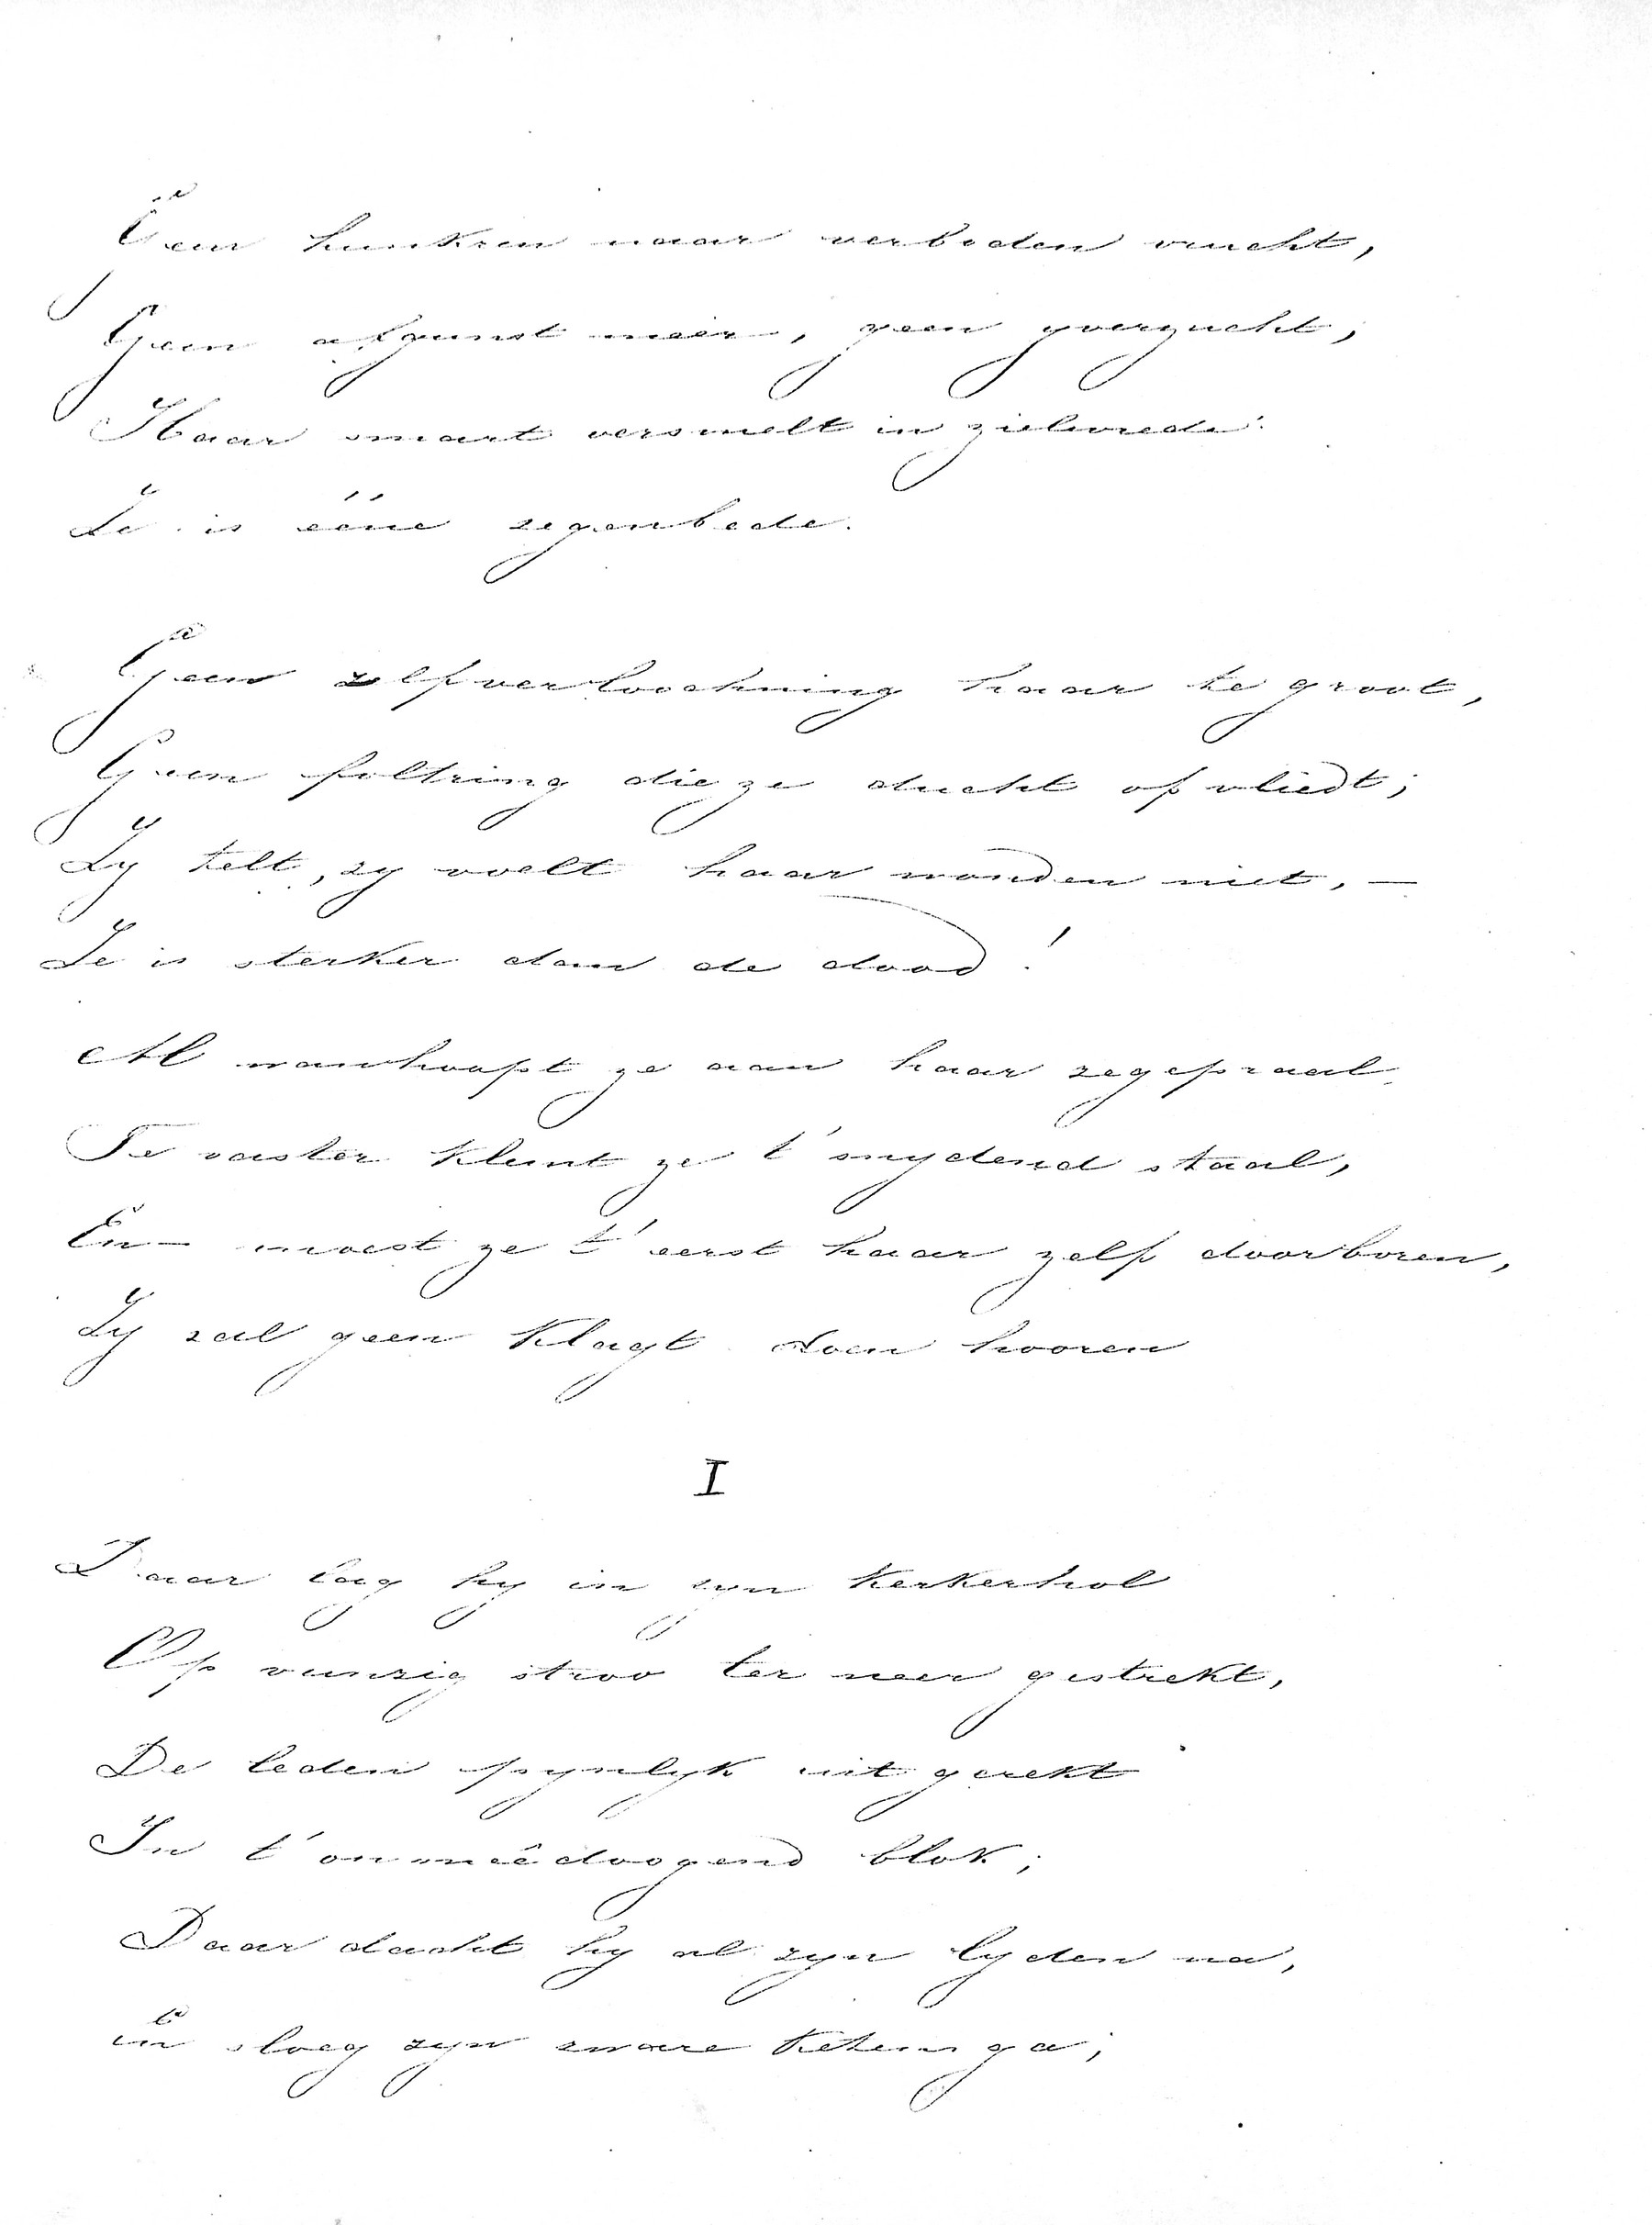 Geen hunkren naar verboden vrucht,
Geen afgunst meer, geen yverzucht,
Haar smart versmelt in zielevrede:
Ze is ééne zegenbede.
Geen zelfverloochning haar te groot,
Geen foltring die ze ducht of vliedt;
Zy telt, zy voelt haar wonden niet, —
Ze is sterker dan de dood!
Al wanhoopt ze aan haar zegepraal
Te vaster klemt ze t' snydend staal,
En — moest ze t' eerst haar zelf doorboren,
Zy zal geen klagt doen hooren
I
Daar lag hy in zyn kerkerhol
Op vunzig stroo ter neer gestrekt,
De leden pynlyk uit gerekt
In t' onmeêdoogend blok;
Daar dacht hy al zyn lyden na,
En sloeg zyn zware ketens ga;